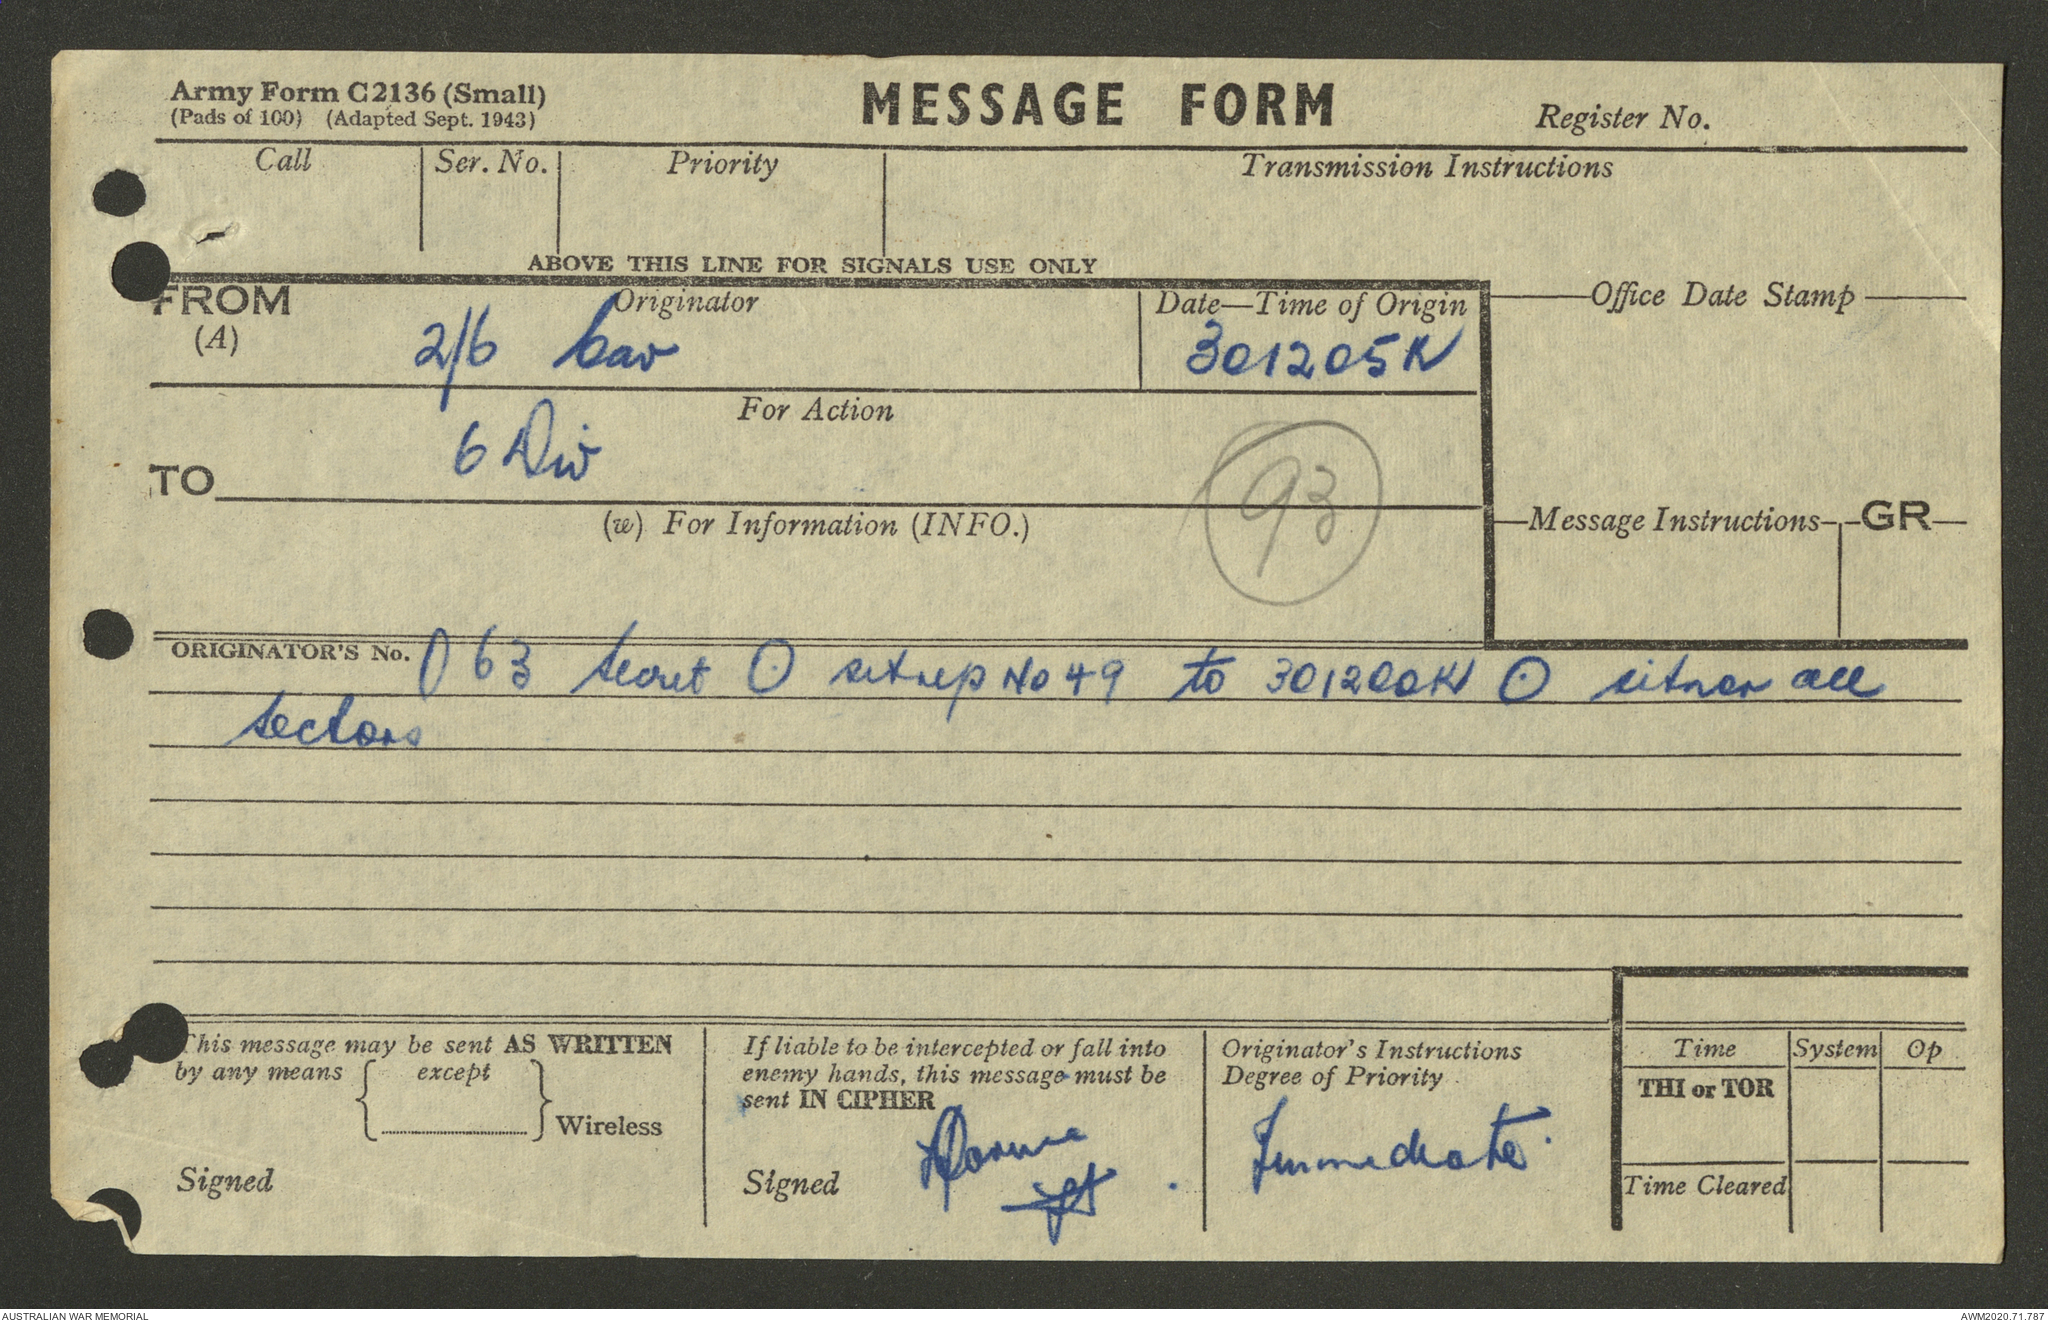 Army Form C2136 (Small)
(Pads of 100) (Adapted Sept. 1943)
MESSAGE FORM
Register No.
Call
Ser. No.
Priority
Transmission Instructions
ABOVE THIS LINE FOR SIGNALS USE ONLY
FROM
(A)
Originator
2/6 Cav
Date—Time of Origin
301205K
Office Date Stamp
For Action
6 Div
TO
93
(w) For Information (INFO.)
Message Instructions
GR
ORIGINATOR'S No. O 63 secret O sitrep No 49 to 301200K O sitnor all
sectors
This message may be sent AS WRITTEN
by any means except
Wireless
Signed
If liable to be intercepted or fall into
enemy hands, this message must be
sent IN CIPHER
Signed
Originator's Instructions
Degree of Priority
Immediate.
Time
System
Op
THI or TOR
Time Cleared
AUSTRALIAN WAR MEMORIAL
AWM2020.71.787